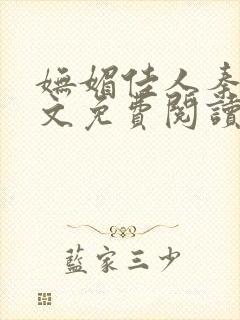 嫵媚佳人秦
文免費閱讀
藍家三少